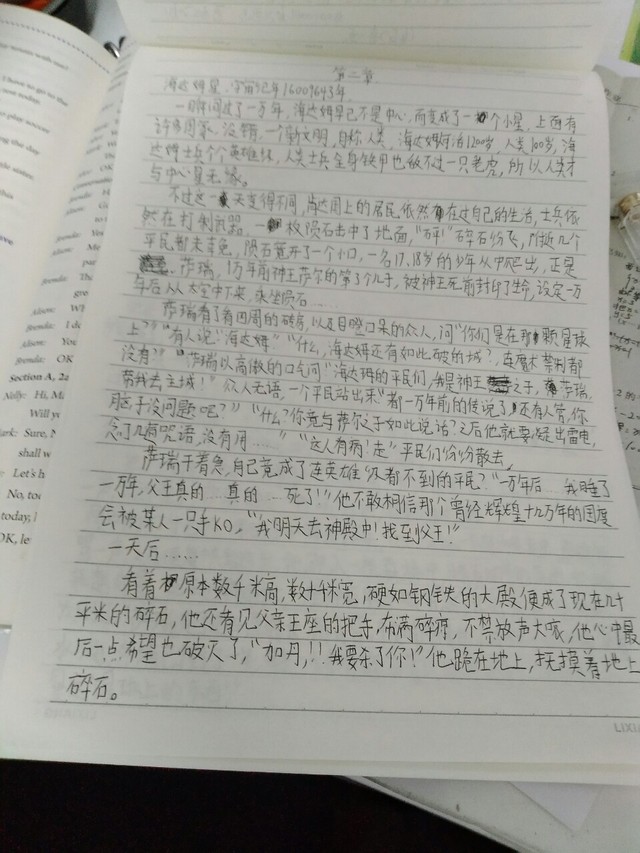 第二章
海达姆星,宇宙纪年16009643年
一瞬间过了一万年,海达姆早已不是中心,而变成了一个小星,上面有
许多国家、没错,一个新文明,自称人类,海达姆可活1200岁,人类100岁,海
达姆士兵个个英雄级,人类士兵全身铁甲也敌不过一只老虎,所以人类才
与中心星无缘。
不过这一天变得不同,海达姆上的居民依然在过自己的生活,士兵依
然在打制武器。一枚陨石击中了地面,“砰!”碎石纷飞,几个
平民都未幸免,陨石竟开了一个小口,一名17,18岁的少年从中爬出,正是
萨瑞,1万年前神王萨尔的第3个儿子,被神王死前封印了生命,设定一万
年后从太空中下来,乘坐陨石……
萨瑞看了看四周的砖房,以及目瞪口呆的众人,问“你们是在那颗星球
上?”“有人说:海达姆”“什么,海达姆还有如此破的城?,连魔术草荆都
没有”“萨瑞以高傲的口气问“海达姆的平民们,我是神王之子,萨瑞,
带我去主城!”众人无语,一个平民站出来“都一万年前的传说了,还有人管,你
脑子没问题吧?”“什么?你竟与萨尔之子如此说话?之后他就要凝出雷电,
念了几遍咒语,没有用……”“这人有病!走”平民们纷纷散去
萨瑞干着急,自己竟成了连英雄级都不到的平民?“一万年后……我睡了
一万年,父王真的……真的……死了!”他不敢相信那个曾经辉煌十几万年的国度
会被某人一只手KO,“我明天去神殿中!找到父王!”
一天后……
看着原本数千米高,数十米宽,硬如钢铁的大殿便成了现在几十
平米的碎石,他还看见父亲王座的把手,布满碎痕,不禁放声大哭,他心中最
后一点希望也破灭了,“加丹,!!我要杀了你!”他跪在地上,抚摸着地上
碎石。
LIXI
I have to go to the
Brenda:
Alison:
Brenda:
Alison:
Brenda: I do
Alison:
Brenda: OK
Section A, 2a
Nelly: Hi, M
Will yo
shall w
Let's h
No, too
today, I
OK, le